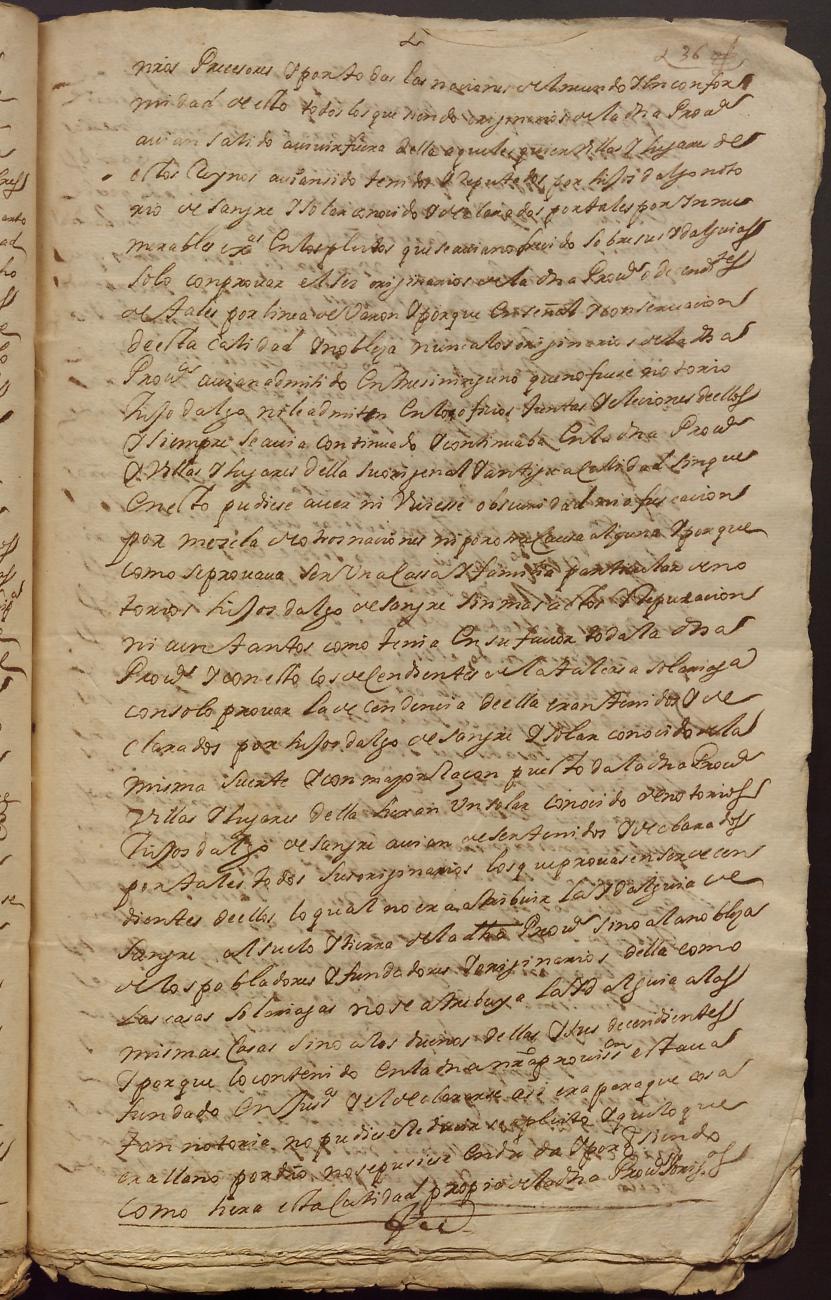 236
nros Precesores Y por todas las naciones del mundo Y en confor
midad de esto todos los que siendo originarios de la dha Prova
avian salido a vivir fuera della a qualesquier Villas Y lugares des
estos Reynos avian sido tenidos Y Reputados por hijos dalgo noto
rios de sangre Y solar conocido Y declarados por tales por Innu
merables exas En los pleitos que se avian ofrecido sobre sus Ydalguias
solo con provar el ser originarios de la dha Prova o decendtes
de tales por linea de Varon Y porque En señal Y conservacion
de esta calidad Y nobleza nunca los originarios de la dha
Prova avian admitido Entre si ninguno que no fuese notorio
hijo dalgo ni le admiten En los ofizios Juntas Y eleciones dellos
Y siempre se avia continuado Y continuaba En la dha Prova
Y Villas Y lugares della su original Y antigua Calidad sin que
En esto pudiese aver ni Uviese obscuridad ni ofuscacion
por mezcla de otras naciones ni por otra Causa alguna Y porque
como se provava ser Una Cassa Y familia particular de no
torios hijos dalgo de sangre sin mas actos Y Reputacion
ni aun tantos como tenia En su favor toda la dha
Prova Y con esto los decendientes de la tal casa solariega
con solo provar la decendencia de ella eran tenidos Y de
clarados por hijos dalgo de sangre Y solar conocido de la
misma suerte Y con mayor Raçon pues toda la dha Prova
Villas Y lugares della heran Un solar conocido de notorios
hijos dalgo de sangre avian de ser tenidos Y declarados
por tales todos sus originarios los que provasen ser decen
dientes de ellos lo qual no era atribuir la Ydalguia de
sangre al suelo Y tierra de la dha Prova sino a la nobleza
de los pobladores Y fundadores Y originarios della como
las casas solariegas no se atribuya la Ydalguia a las
mismas Casas sino a los dueños dellas Y sus decendientes
Y porque lo contenido En la dha nra provision estava
fundado En Justa Y el declararse asi era para que cosa
tan notoria no pudiese Reducirse a pleito Y aquello que
era llano por dro no se pusiese En duda Y por q siendo
como hera esta Calidad propia de la dha Prova Y orig.os